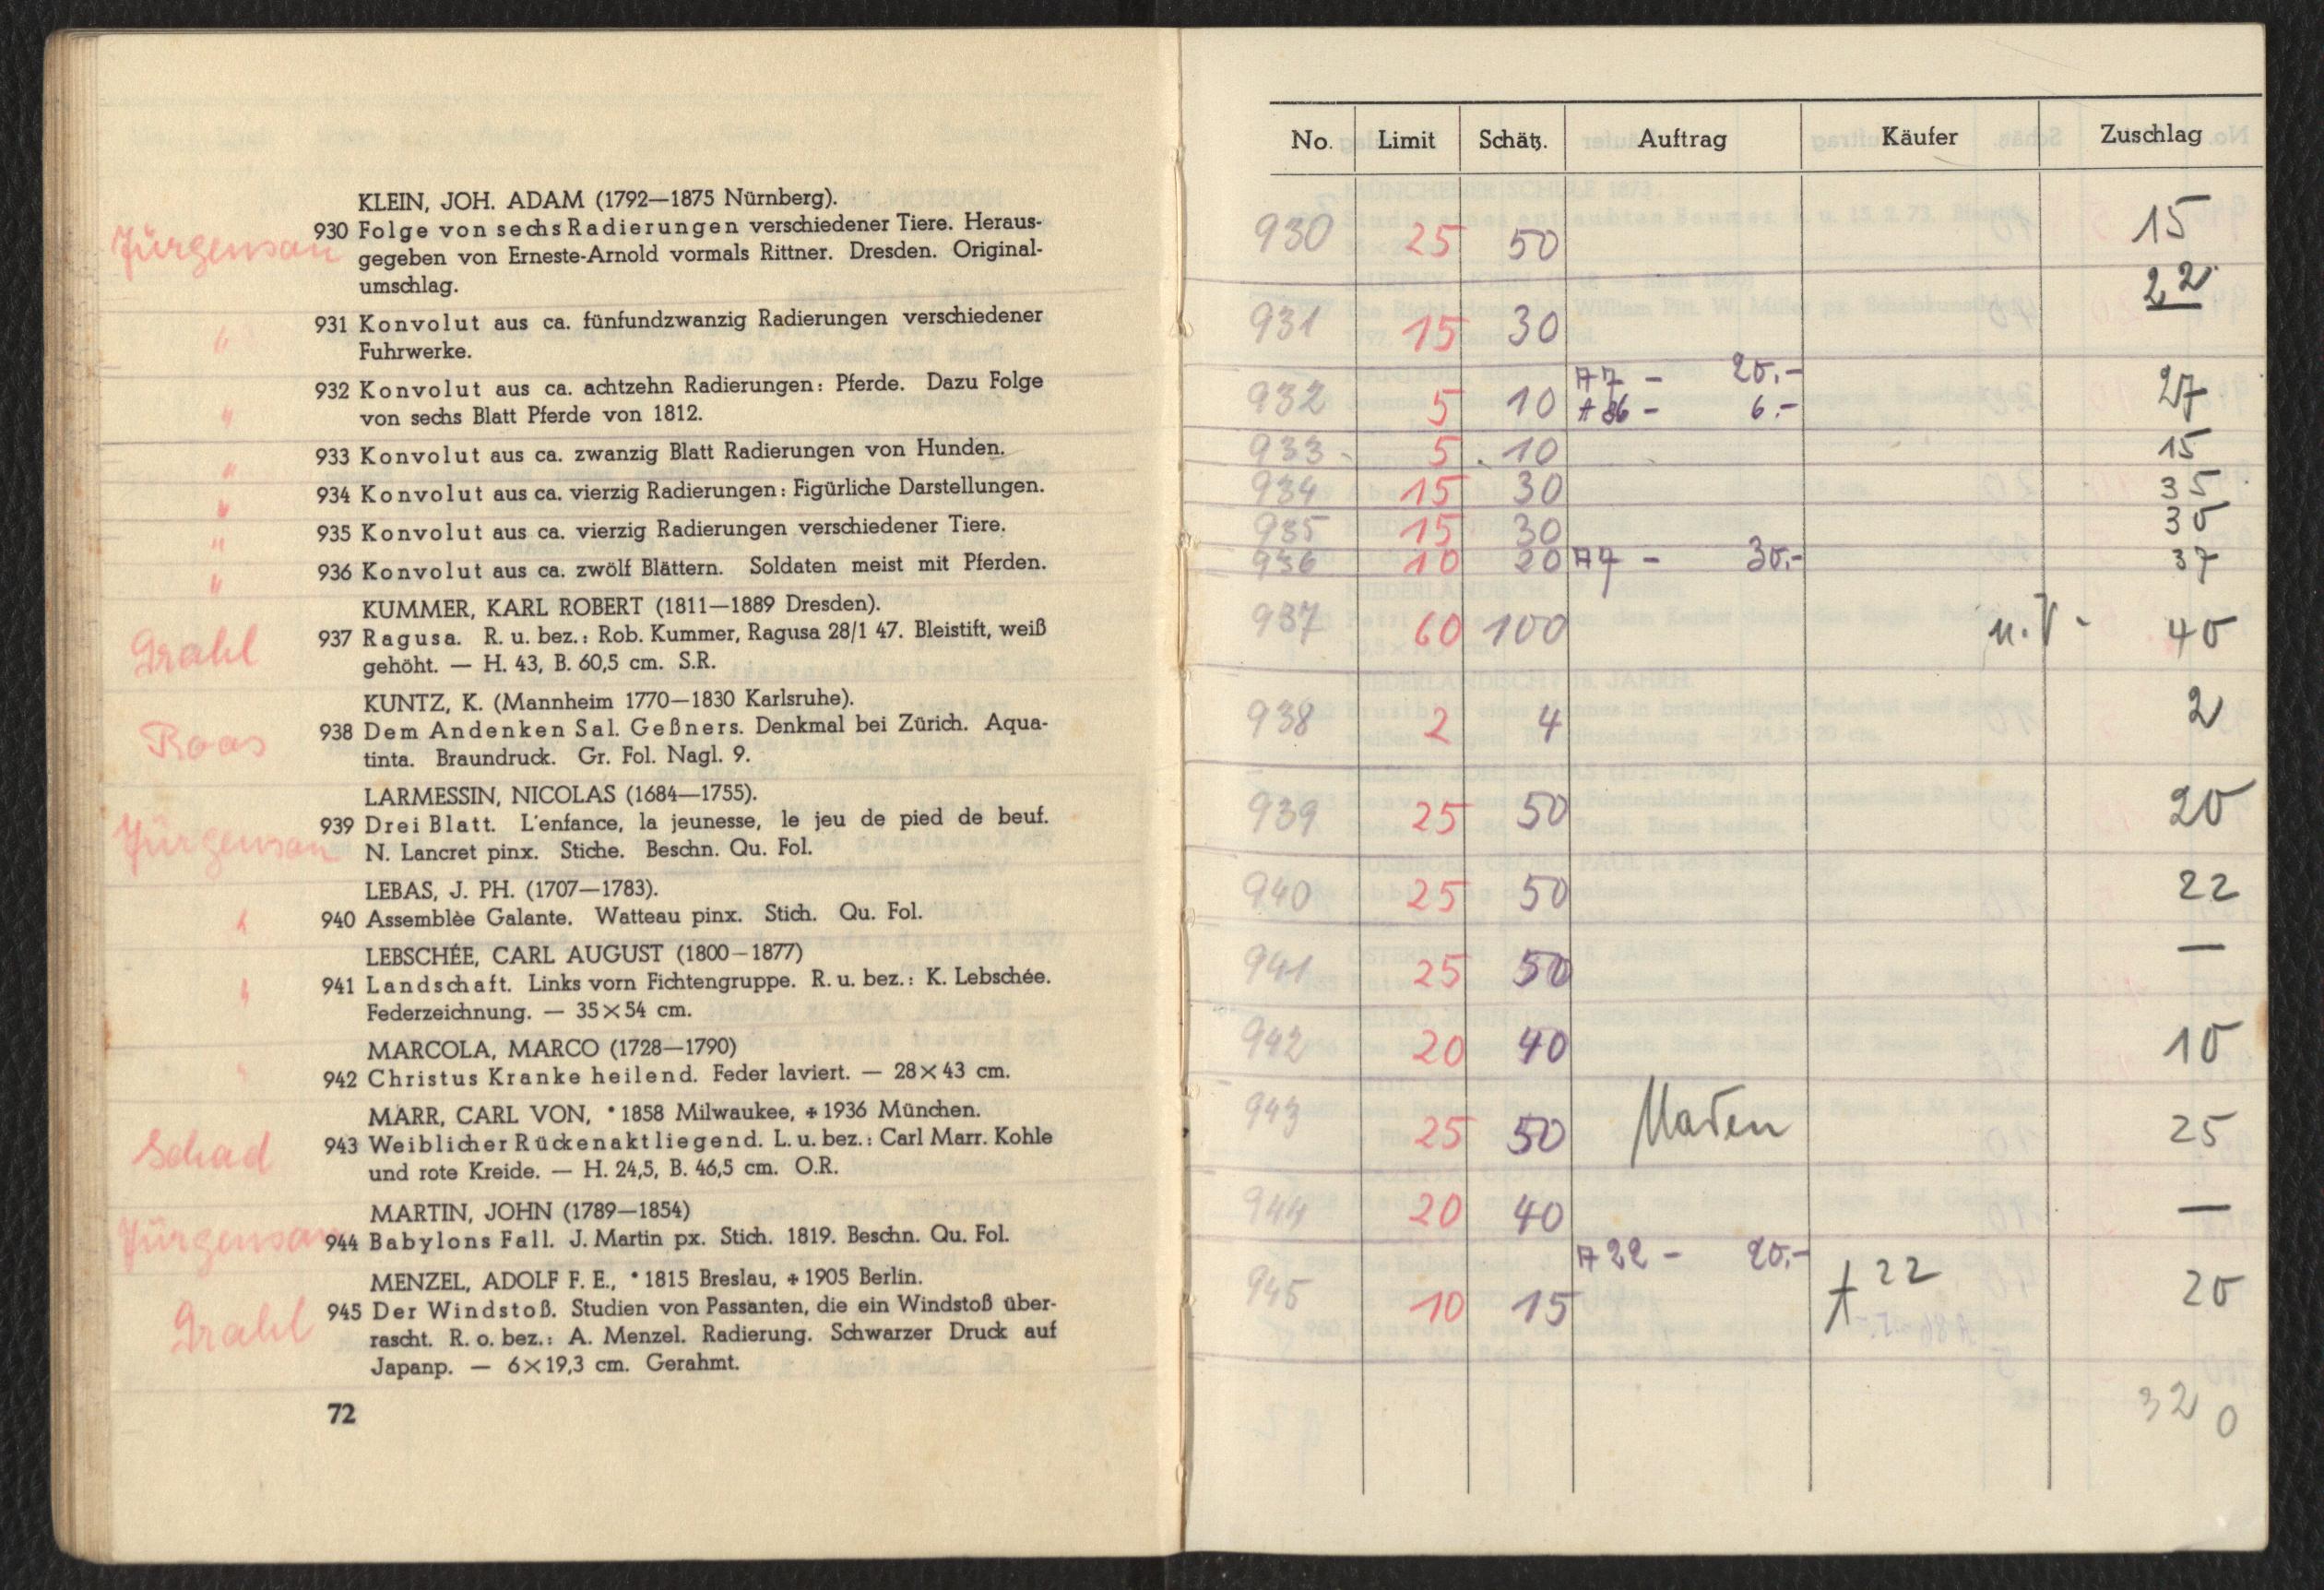 KLEIN, JOH. ADAM (1792—1875 Nürnberg).
Jürgensen 930 Folge von sechs Radierungen verschiedener Tiere. Heraus-
gegeben von Erneste-Arnold vormals Rittner. Dresden. Original-
umschlag.
" 931 Konvolut aus ca. fünfundzwanzig Radierungen verschiedener
Fuhrwerke.
" 932 Konvolut aus ca. achtzehn Radierungen: Pferde. Dazu Folge
von sechs Blatt Pferde von 1812.
" 933 Konvolut aus ca. zwanzig Blatt Radierungen von Hunden.
" 934 Konvolut aus ca. vierzig Radierungen: Figürliche Darstellungen.
" 935 Konvolut aus ca. vierzig Radierungen verschiedener Tiere.
" 936 Konvolut aus ca. zwölf Blättern. Soldaten meist mit Pferden.
KUMMER, KARL ROBERT (1811—1889 Dresden).
Grahl 937 Ragusa. R. u. bez.: Rob. Kummer, Ragusa 28/1 47. Bleistift, weiß
gehöht. — H. 43, B. 60,5 cm. S.R.
KUNTZ, K. (Mannheim 1770—1830 Karlsruhe).
Roos 938 Dem Andenken Sal. Geßners. Denkmal bei Zürich. Aqua-
tinta. Braundruck. Gr. Fol. Nagl. 9.
LARMESSIN, NICOLAS (1684—1755).
Jürgensen 939 Drei Blatt. L'enfance, la jeunesse, le jeu de pied de beuf.
N. Lancret pinx. Stiche. Beschn. Qu. Fol.
LEBAS, J. PH. (1707—1783).
" 940 Assemblèe Galante. Watteau pinx. Stich. Qu. Fol.
LEBSCHÉE, CARL AUGUST (1800–1877)
" 941 Landschaft. Links vorn Fichtengruppe. R. u. bez.: K. Lebschée.
Federzeichnung. — 35×54 cm.
MARCOLA, MARCO (1728—1790)
" 942 Christus Kranke heilend. Feder laviert. — 28×43 cm.
MARR, CARL VON, *1858 Milwaukee, +1936 München.
Schad 943 Weiblicher Rückenakt liegend. L. u. bez.: Carl Marr. Kohle
und rote Kreide. — H. 24,5, B. 46,5 cm. O.R.
MARTIN, JOHN (1789—1854)
Jürgensen 944 Babylons Fall. J. Martin px. Stich. 1819. Beschn. Qu. Fol.
MENZEL, ADOLF F. E., *1815 Breslau, +1905 Berlin.
Grahl 945 Der Windstoß. Studien von Passanten, die ein Windstoß über-
rascht. R. o. bez.: A. Menzel. Radierung. Schwarzer Druck auf
Japanp. — 6×19,3 cm. Gerahmt.
72
No. Limit Schätz. Auftrag Käufer Zuschlag
930 25 50 15
931 15 30 22
932 5 10 A7 – 20.- 27
A86 – 6.-
933 5 10 15
934 15 30 35
935 15 30 30
936 10 20 A7 – 30.- 37
937 60 100 n. V. 40
938 2 4 2
939 25 50 20
940 25 50 22
941 25 50 —
942 20 40 10
943 25 50 25
944 20 40 —
A22 – 20.-
945 10 15 A22 20
320